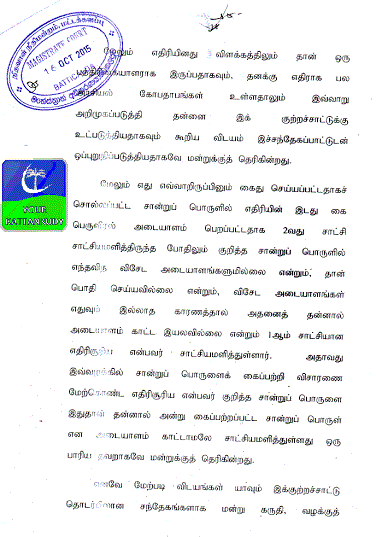 நீதவான் நீதிமன்றம், மட்டக்களப்பு
MAGISTRATE COURT
16 OCT 2015
BATTICALOA
மேலும் எதிரியினது விளக்கத்திலும் தான் ஒரு
இருப்பதாகவும், தனக்கு எதிராக பல
கோபதாபங்கள் உள்ளதாலும் இவ்வாறு
அறிமுகப்படுத்தி தன்னை இக் குற்றச்சாட்டுக்கு
உட்படுத்தியதாகவும் கூறிய விடயம் இச்சந்தேகப்பாட்டுடன்
ஒப்புறுதிப்படுத்தியதாகவே மன்றுக்குத் தெரிகின்றது.
மேலும் எது எவ்வாறிருப்பினும் கைது செய்யப்பட்டதாகச்
சொல்லப்பட்ட சான்றுப் பொருளில் எதிரியின் இடது கை
பெருவிரல் அடையாளம் பெறப்பட்டதாக 2வது சாட்சி
சாட்சியமளித்திருந்த போதிலும் குறித்த சான்றுப் பொருளில்
எந்தவித விசேட அடையாளங்களுமில்லை என்றும், தான்
பொதி செய்யவில்லை என்றும், விசேட அடையாளங்கள்
எதுவும் இல்லாத காரணத்தால் அதனைத் தன்னால்
அடையாளம் காட்ட இயலவில்லை என்றும் 1ஆம் சாட்சியான
எதிரிசூரிய என்பவர் சாட்சியமளித்துள்ளார். அதாவது
இவ்வழக்கில் சான்றுப் பொருளைக் கைப்பற்றி விசாரணை
மேற்கொண்ட எதிரிசூரிய என்பவர் குறித்த சான்றுப் பொருளை
இதுதான் தன்னால் அன்று கைப்பற்றப்பட்ட சான்றுப் பொருள்
என அடையாளம் காட்டாமலே சாட்சியமளித்துள்ளது ஒரு
பாரிய தவறாகவே மன்றுக்குத் தெரிகின்றது.
எனவே மேற்படி விடயங்கள் யாவும் இக்குற்றச்சாட்டு
தொடர்பிலான சந்தேகங்களாக மன்று கருதி, வழக்குத்
YOUR
KATTANKUDY